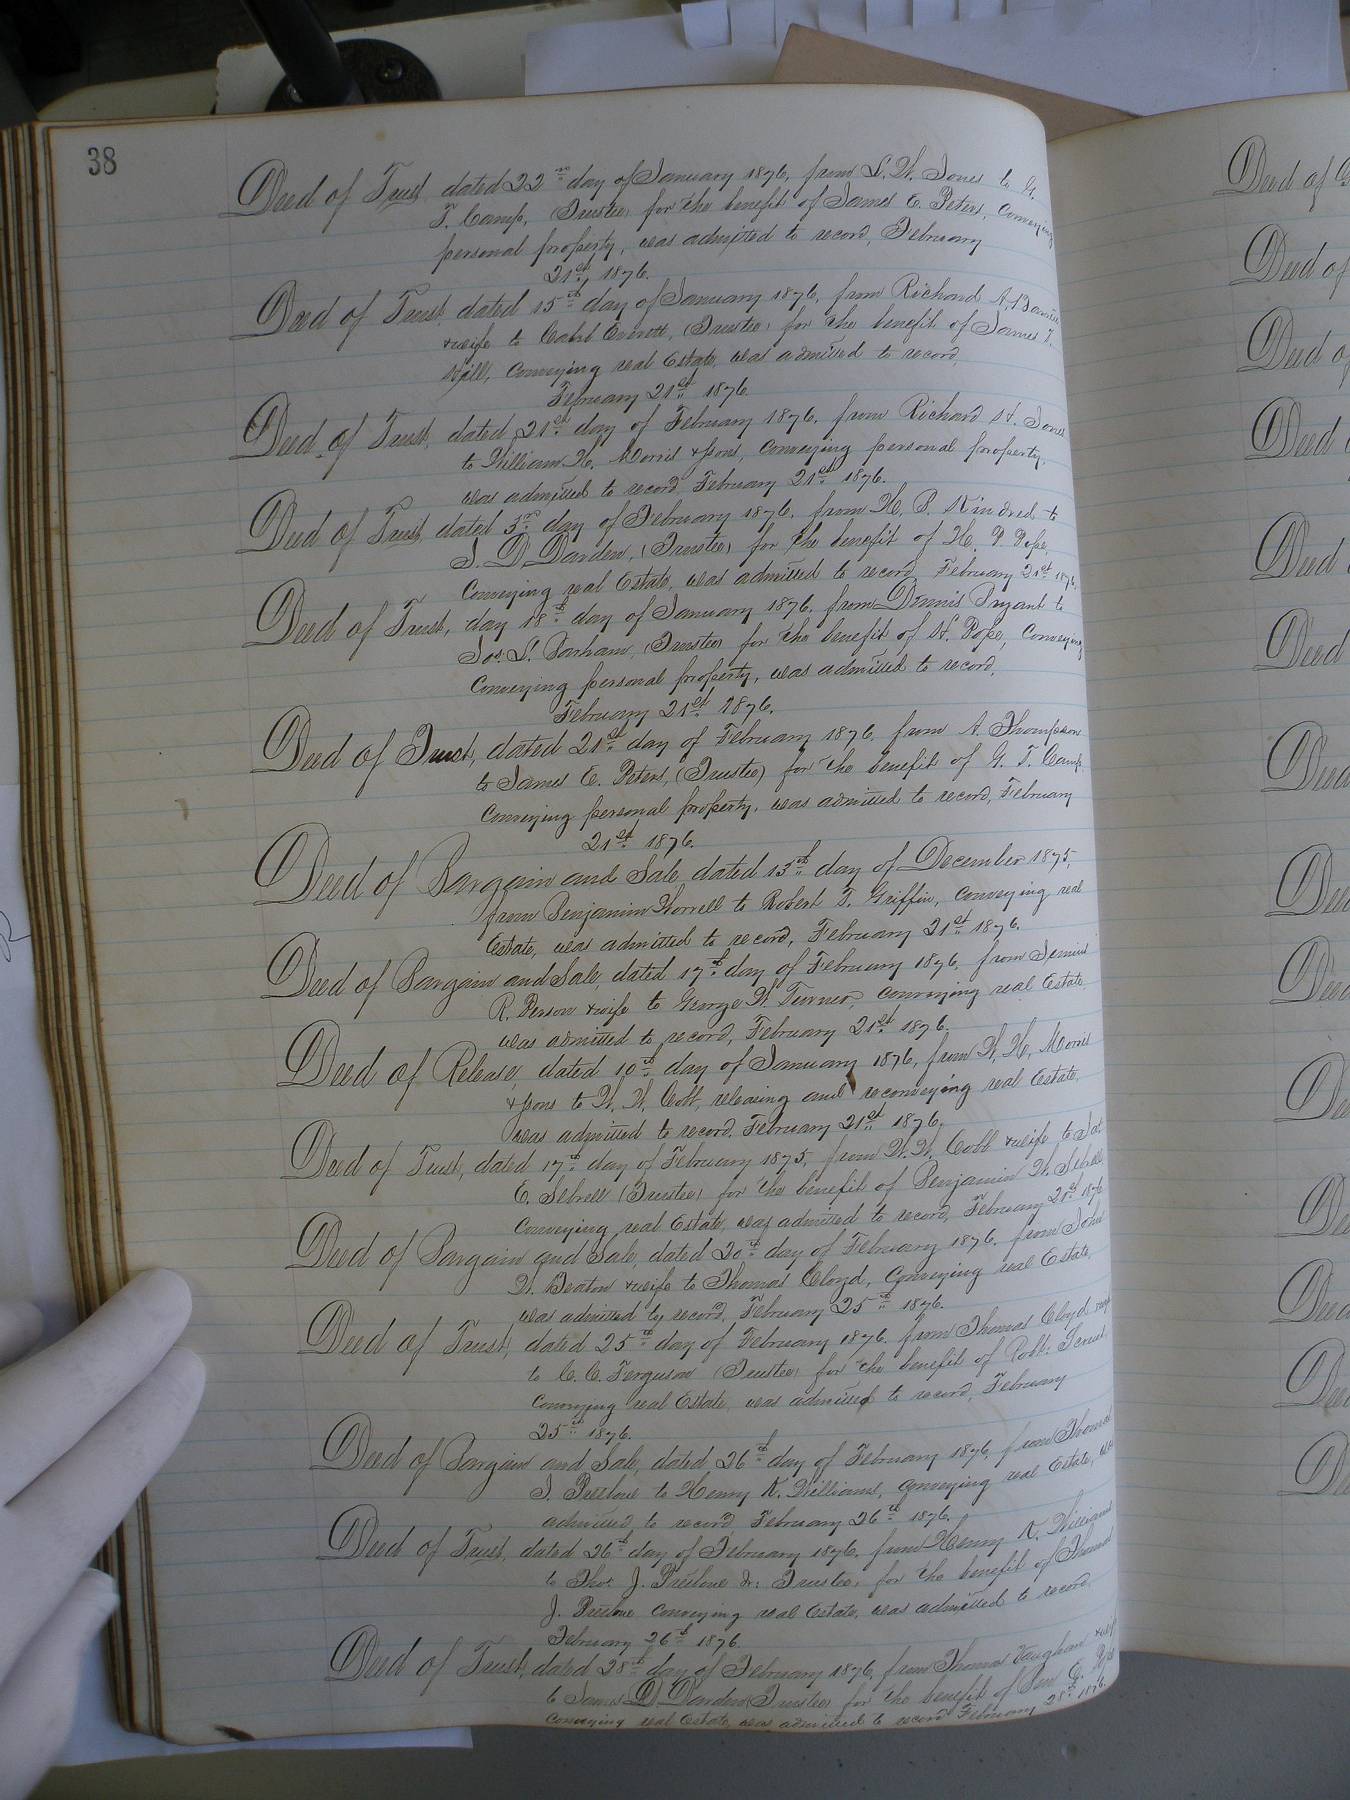 38
Deed of Trust, dated 22nd day of January 1876, from L. W. Jones to G.
T. Camp, (Trustee) for the benefit of James E. Peters, conveying
personal property, was admitted to record, February
21st, 1876.
Deed of Trust, dated 15th day of January 1876, from Richard A.
& wife to Everett, (Trustee) for the benefit of James T.
conveying real Estate, was admitted to record,
February 21st 1876.
Deed of Trust, dated 21st day of February 1876, from Richard H. Jones
to William H. Morris & Sons, conveying personal property,
was admitted to record, February 21st 1876.
Deed of Trust, dated 3rd day of February 1876, from H. P. Kindred to
J. D. Darden, (Trustee) for the benefit of H. P. Pope,
Conveying real Estate, was admitted to record February 21st 1876.
Deed of Trust, day 18th day of January 1876, from Dennis to
Jos. L. Barham, (Trustee) for the benefit of H. Pope, Conveying
Conveying personal property, was admitted to record,
February 21st 1876.
Deed of Trust, dated 21st day of February 1876, from A. Thompson
to James E. Peters, (Trustee) for the benefit of G. T. Camp,
Conveying personal property, was admitted to record, February
21st 1876.
Deed of Bargain and Sale, dated 13th day of December 1875,
from Benjamin Worrell to Robert T. Griffin, Conveying real
Estate, was admitted to record, February 21st 1876.
Deed of Bargain and Sale, dated 17th day of February 1876, from
R. Person & wife to George W. Turner, conveying real Estate
was admitted to record, February 21st 1876.
Deed of Release, dated 10th day of January 1876, from W. H. Morris
& Sons to W. W. Cobb, releasing and reconveying real Estate,
was admitted to record, February 21st 1876.
Deed of Trust, dated 17th day of February 1875, from W. W. Cobb & wife to Jas
E. Sebrell (Trustee) for the benefit of Benjamin W. Sebrell
Conveying real Estate, was admitted to record, February 21st 1876
Deed of Bargain and Sale, dated 20th day of February 1876, from John
W. Beaton & wife to Thomas Cloyd, Conveying real Estate,
was admitted to record, February 25th 1876.
Deed of Trust, dated 25th day of February 1876, from Thomas Cloyd & wife
to C. C. Ferguson (Trustee) for the benefit of Robt.
Conveying real Estate, was admitted to record, February
25th 1876.
Deed of Bargain and Sale, dated 26th day of February 1876, from Thomas
J. Preslove to Henry K. Williams, conveying real Estate, was
admitted to record February 26th 1876.
Deed of Trust, dated 26th day of February 1876, from Henry K. Williams
to Thos. J. Preslove Jr. Trustee, for the benefit of Thomas
J. Preslove conveying real Estate, was admitted to record
February 26th 1876.
Deed of Trust, dated 28th day of February 1876, from Thomas Vaughan & wife
to James D Darden Trustee for the benefit of E.
Conveying real Estate, was admitted to record February 28th 1876.
Deed of
Deed of
Deed of
Deed
Deed
Deed
Deed